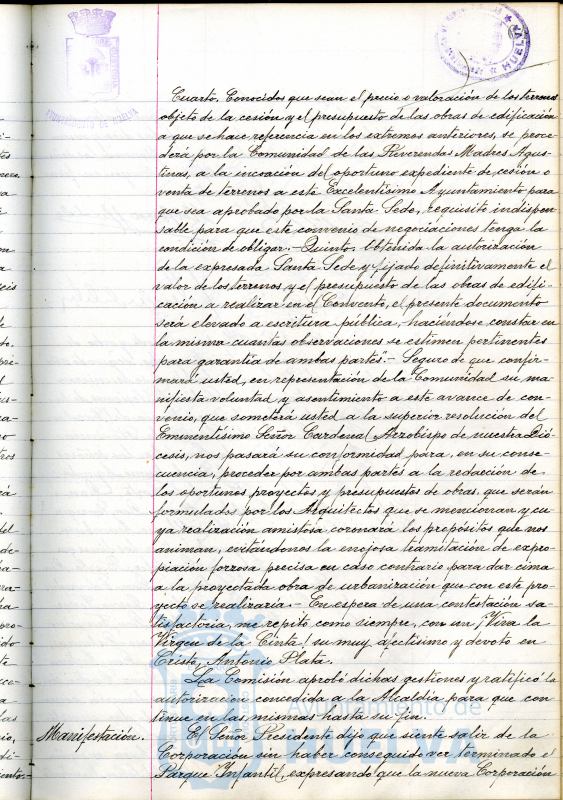 AYUNTAMIENTO DE HUELVA
HUELVA
Cuarto. Conocidos que sean el precio o valoración de los terrenos
objeto de la cesión y el presupuesto de las obras de edificación
a que se hace referencia en los extremos anteriores, se proce-
derá por la Comunidad de las Reverendas Madres Agus-
tinas, a la incoación del oportuno expediente de cesión o
venta de terrenos a este Excelentísimo Ayuntamiento para
que sea aprobado por la Santa Sede, requisito indispen
sable para que este convenio de negociaciones tenga la
condición de obligar.- Quinto. Obtenida la autorización
de la expresada Santa Sede y fijado definitivamente el
valor de los terrenos, y el presupuesto de las obras de edifi-
cación a realizar en el Convento, el presente documento
será elevado a escritura pública, haciéndose constar en
la misma cuantas observaciones se estimen pertinentes
para garantía de ambas partes".- Seguro de que confir-
mará usted, en representación de la Comunidad su ma-
nifiesta voluntad y asentimiento a este avance de con-
venio, que someterá usted a la superior resolución del
Eminentísimo Señor Cardenal Arzobispo de nuestra Dió-
cesis, nos pasará su conformidad para, en su conse-
cuencia, proceder por ambas partes a la redacción de
los oportunos proyectos y presupuestos de obras, que serán
formulados por los Arquitectos que se mencionan y cu-
ya realización amistosa coronará los propósitos que nos
animan, evitándonos la enojosa tramitación de expro-
piación forzosa precisa en caso contrario para dar cima
a la proyectada obra de urbanización que con este pro-
yecto se realizaría.- En espera de una contestación sa-
tisfactoria, me repito como siempre, con un ¡Viva la
Virgen de la Cinta! su muy afectísimo y devoto en
Cristo, Antonio Plata.
La Comisión aprobó dichas gestiones y ratificó la
autorización concedida a la Alcaldía para que con
tinue en las mismas hasta su fin.
Manifestación. El Señor Presidente dijo que siente salir de la
Corporación sin haber conseguido ver terminado el
Parque Infantil, expresando que la nueva Corporación
Ayuntamiento de